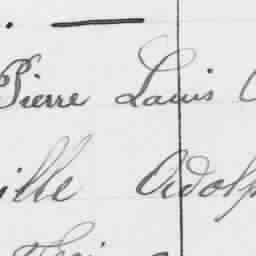 Pierre Louis
ille Adolp